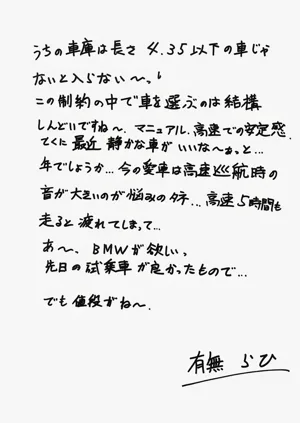 うちの車庫は長さ 4.35以下の車じゃ
ないと入らない〜。
この制約の中で車を選ぶのは結構
しんどいですね〜、マニュアル、高速での安定感、
てくに最近 静かな車がいいな〜ぁっと...
年でしょうか...今の愛車は高速巡航時の
音が大きいのが悩みのタネ...高速5時間も
走ると疲れてしまって...
あ〜、BMWが欲しい。
先日の試乗車が良かったもので...
でも値段がね〜、
有無 らひ